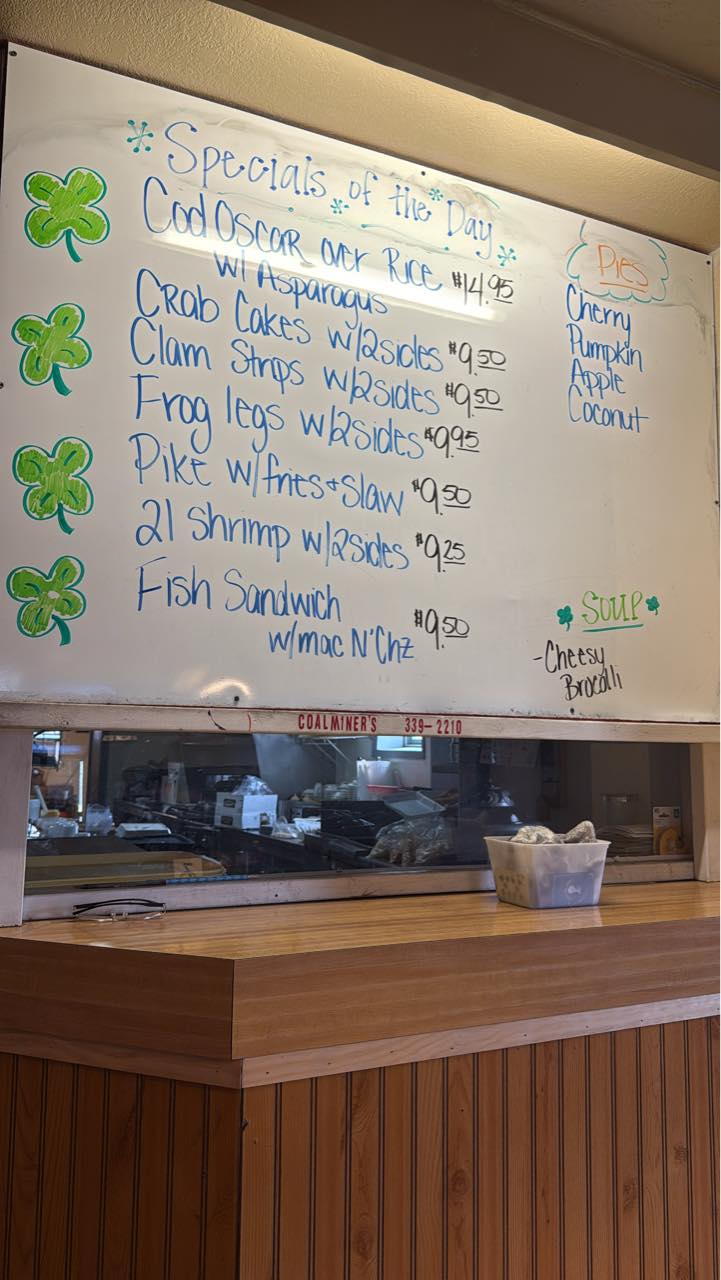 Specials of the Day
Cod Oscar over Rice $14.95
w/ Asparagus
Crab Cakes w/2sides $9.50
Clam Strips w/2sides $9.50
Frog legs w/2sides $9.95
Pike w/fries+Slaw $9.50
21 Shrimp w/2sides $9.25
Fish Sandwich
w/mac N'Chz $9.50
Pies
Cherry
Pumpkin
Apple
Coconut
SOUP
-Cheesy
Brocolli
COALMINER'S 339-2210